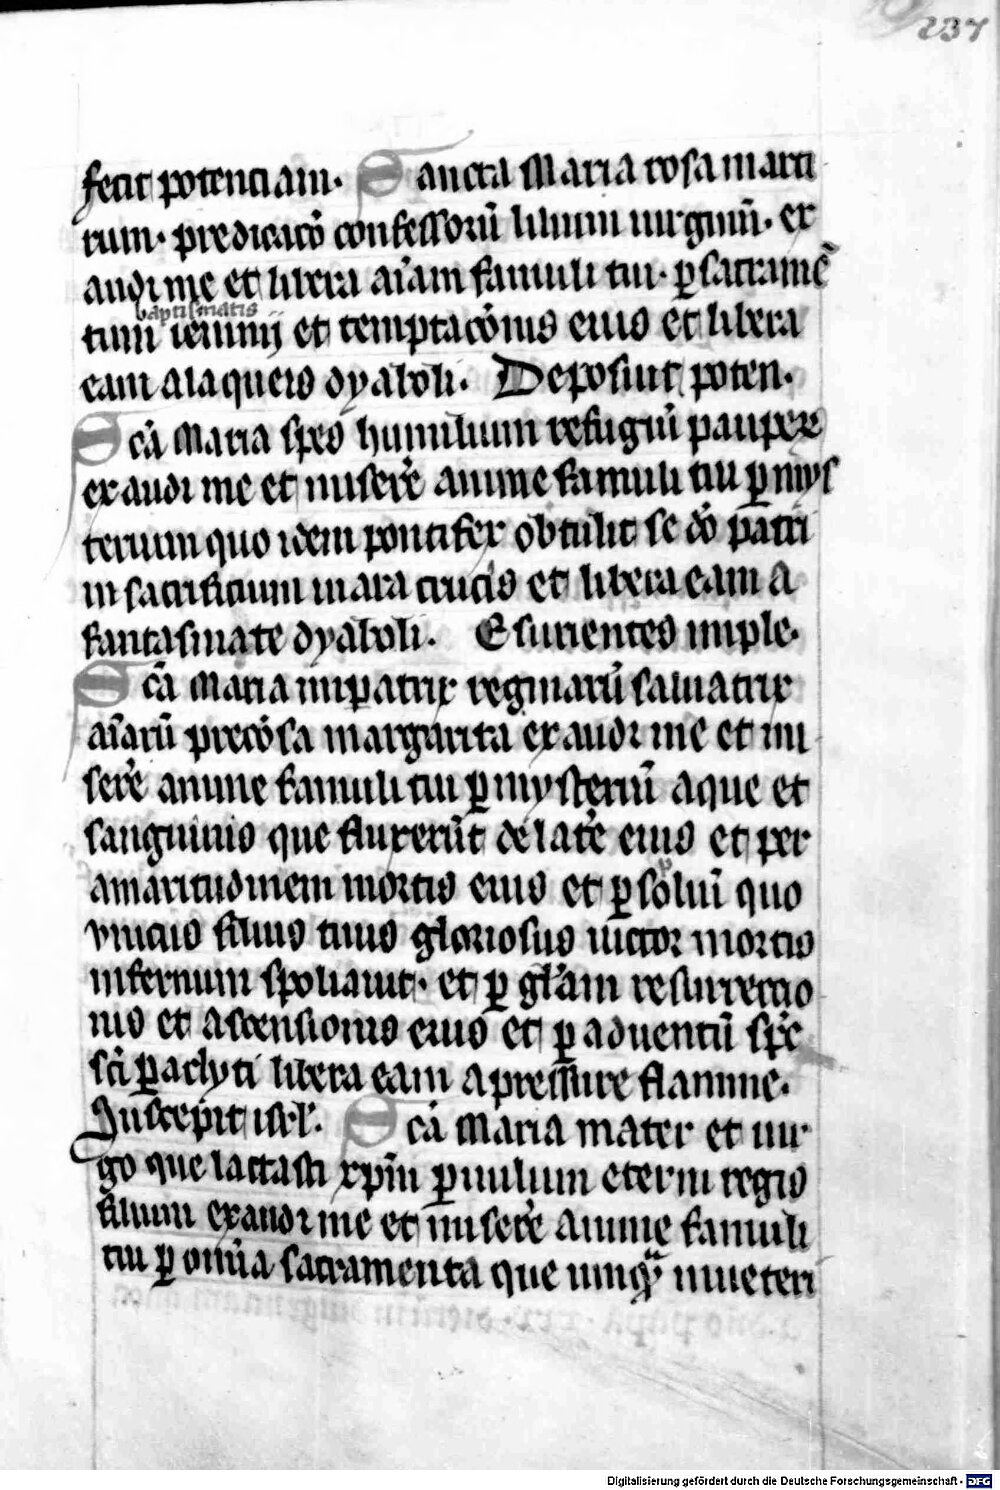 237
fecit potenciam. Sancta Maria rosa marti
rum. predicacō confessorū lilium uirginū. ex
audi me et libera aīam famuli tui. ꝑ sacramē
baptismatis
tum ieiunij et temptacōnis eius et libera
eam a laqueis dyaboli. Deposuit poten.
Scā Maria spes humilium refugiū pauperꝝ
exaudi me et miserē anime famuli tui ꝑ mys
terium quo idem pontifex obtulit se dō patri
in sacrificium in ara crucis et libera eam a
fantasmate dyaboli. Esurientes imple.
Scā Maria imꝑatrix reginarū saluatrix
aīarū preciosa margarita exaudi me et mi
serē anime famuli tui ꝑ mysteriū aque et
sanguinis que fluxerūt de latē eius et per
amaritudinem mortis eius et ꝑ solui quo
vnicus filius tuus gloriosus uictor mortis
infernum spoliauit. et ꝑ gl'am resurrectio
nis et ascensionis eius et ꝑ aduentū spc
sci ꝑaclyti libera eam a pressure flamine.
Suscepit isrl'. Scā Maria mater et uir
go que lactasti xpīn ꝑuulum eterni regis
filium exaudi me et miserē anime famuli
tui ꝑ omīa sacramenta que umqͣ in ueteri
Digitalisierung gefördert durch die Deutsche Forschungsgemeinschaft - DFG